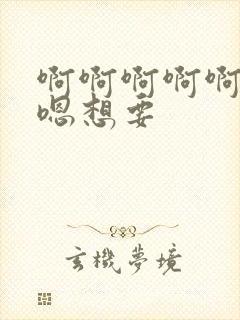 啊啊啊啊啊
嗯想要
玄機夢境